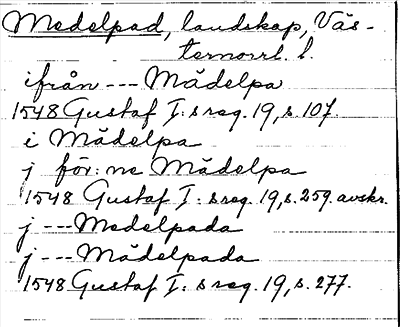 Medelpad, landskap, Väs-
ternorrl. l.
ifrån --- Mädelpa
1548 Gustaf I: s reg. 19, s. 107.
i Mädelpa
j för: ne Mädelpa
1548 Gustaf I: s reg. 19, s. 259. avskr.
j --- Medelpada
j --- Mädelpada
1548 Gustaf I: s reg. 19, s. 277.